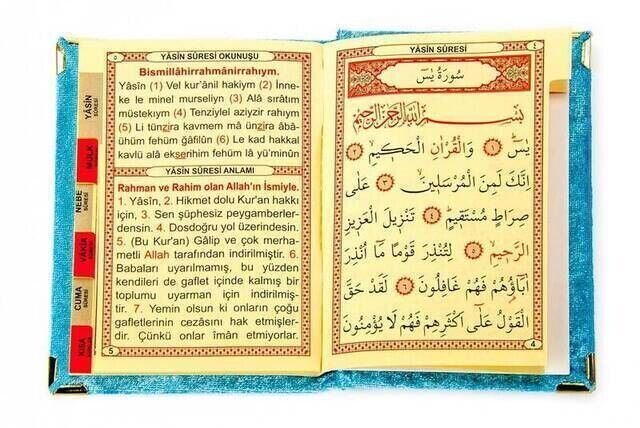 ٥
YÂSÎN SÛRESİ OKUNUŞU
Bismillâhirrahmânirrahıym.
Yâsîn (1) Vel kur'ânil hakiym (2) İnne-
ke le minel murseliyn (3) Alâ sırâtım
müstekıym (4) Tenziylel aziyzir rahıym
(5) Li tünzira kavmem mâ ünzira âbâ-
ühüm fehüm ğâfilûn (6) Le kad hakkal
kavlü alâ ekserihim fehüm lâ yü'minûn
YÂSÎN SÛRESİ ANLAMI
Rahman ve Rahim olan Allah'ın İsmiyle.
1. Yâsîn, 2. Hikmet dolu Kur'an hakkı
için, 3. Sen şüphesiz peygamberler-
densin. 4. Dosdoğru yol üzerindesin.
5. (Bu Kur'an) Gâlip ve çok merha-
metli Allah tarafından indirilmiştir. 6.
Babaları uyarılmamış, bu yüzden
kendileri de gaflet içinde kalmış bir
toplumu uyarman için indirilmiş-
tir. 7. Yemin olsun ki onların çoğu
gafletlerinin cezasını hak etmişler-
dir. Çünkü onlar îmân etmiyorlar.
5
YÂSÎN
SÛRESİ
MÜLK
NEBE
SÛRESİ
VÂKIA
CUMA
SÛRESİ
KISA
YÂSÎN SÛRESİ
٤
سُورَةُ يٰسٓ
بِسْمِ اللّٰهِ الرَّحْمٰنِ الرَّحِيمِ
يٰسٓ ﴿١﴾ وَالْقُرْاٰنِ الْحَكِيمِ ﴿٢﴾
اِنَّكَ لَمِنَ الْمُرْسَلِينَ ﴿٣﴾ عَلٰى
صِرَاطٍ مُسْتَقِيمٍ ﴿٤﴾ تَنْزِيلَ الْعَزِيزِ
الرَّحِيمِ ﴿٥﴾ لِتُنْذِرَ قَوْمًا مَٓا اُنْذِرَ
اٰبَٓاؤُهُمْ فَهُمْ غَافِلُونَ ﴿٦﴾ لَقَدْ حَقَّ
الْقَوْلُ عَلٰٓى اَكْثَرِهِمْ فَهُمْ لَا يُؤْمِنُونَ
4